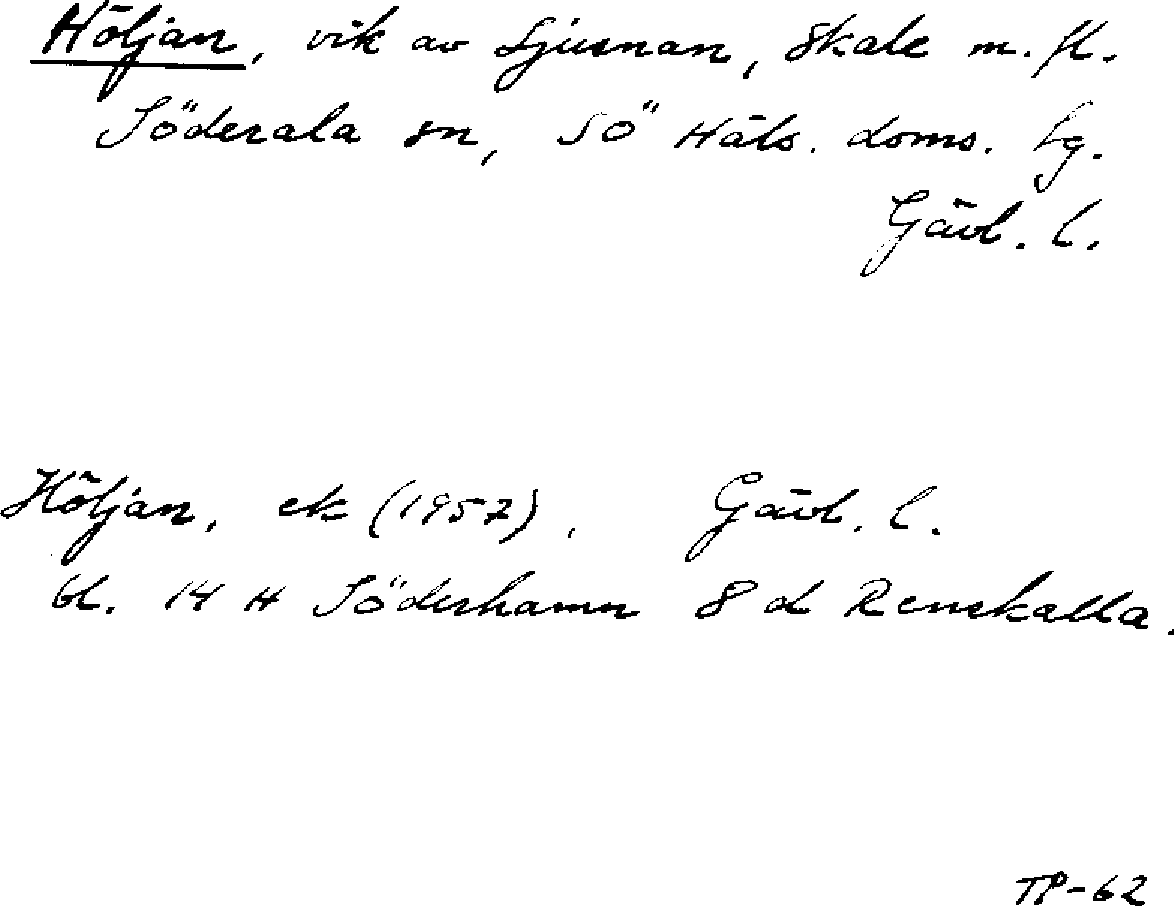 Höljan, vik av Ljusnan, Skale m. fl.
Söderala sn, SÖ Häls. doms. Lg.
Gävl. l.
Höljan, ek (1957), Gävl. l.
bl. 14 H Söderhamn 8 d Renskalla.
TP-62